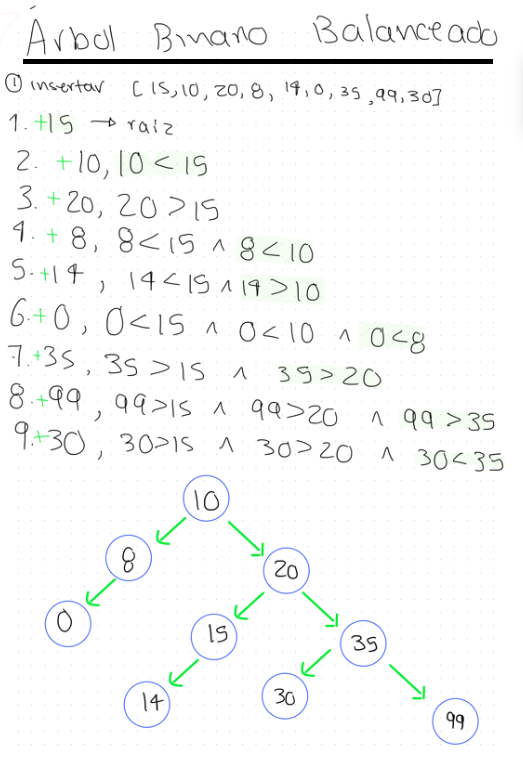 Árbol Binario Balanceado
① insertar [15,10,20,8,14,0,35,99,30]
1. +15 → raiz
2. +10, 10 < 15
3. +20, 20 > 15
4. +8, 8 < 15 ∧ 8 < 10
5. +14, 14 < 15 ∧ 14 > 10
6. +0, 0 < 15 ∧ 0 < 10 ∧ 0 < 8
7. +35, 35 > 15 ∧ 35 > 20
8. +99, 99 > 15 ∧ 99 > 20 ∧ 99 > 35
9. +30, 30 > 15 ∧ 30 > 20 ∧ 30 < 35
10
8
20
0
15
35
14
30
99